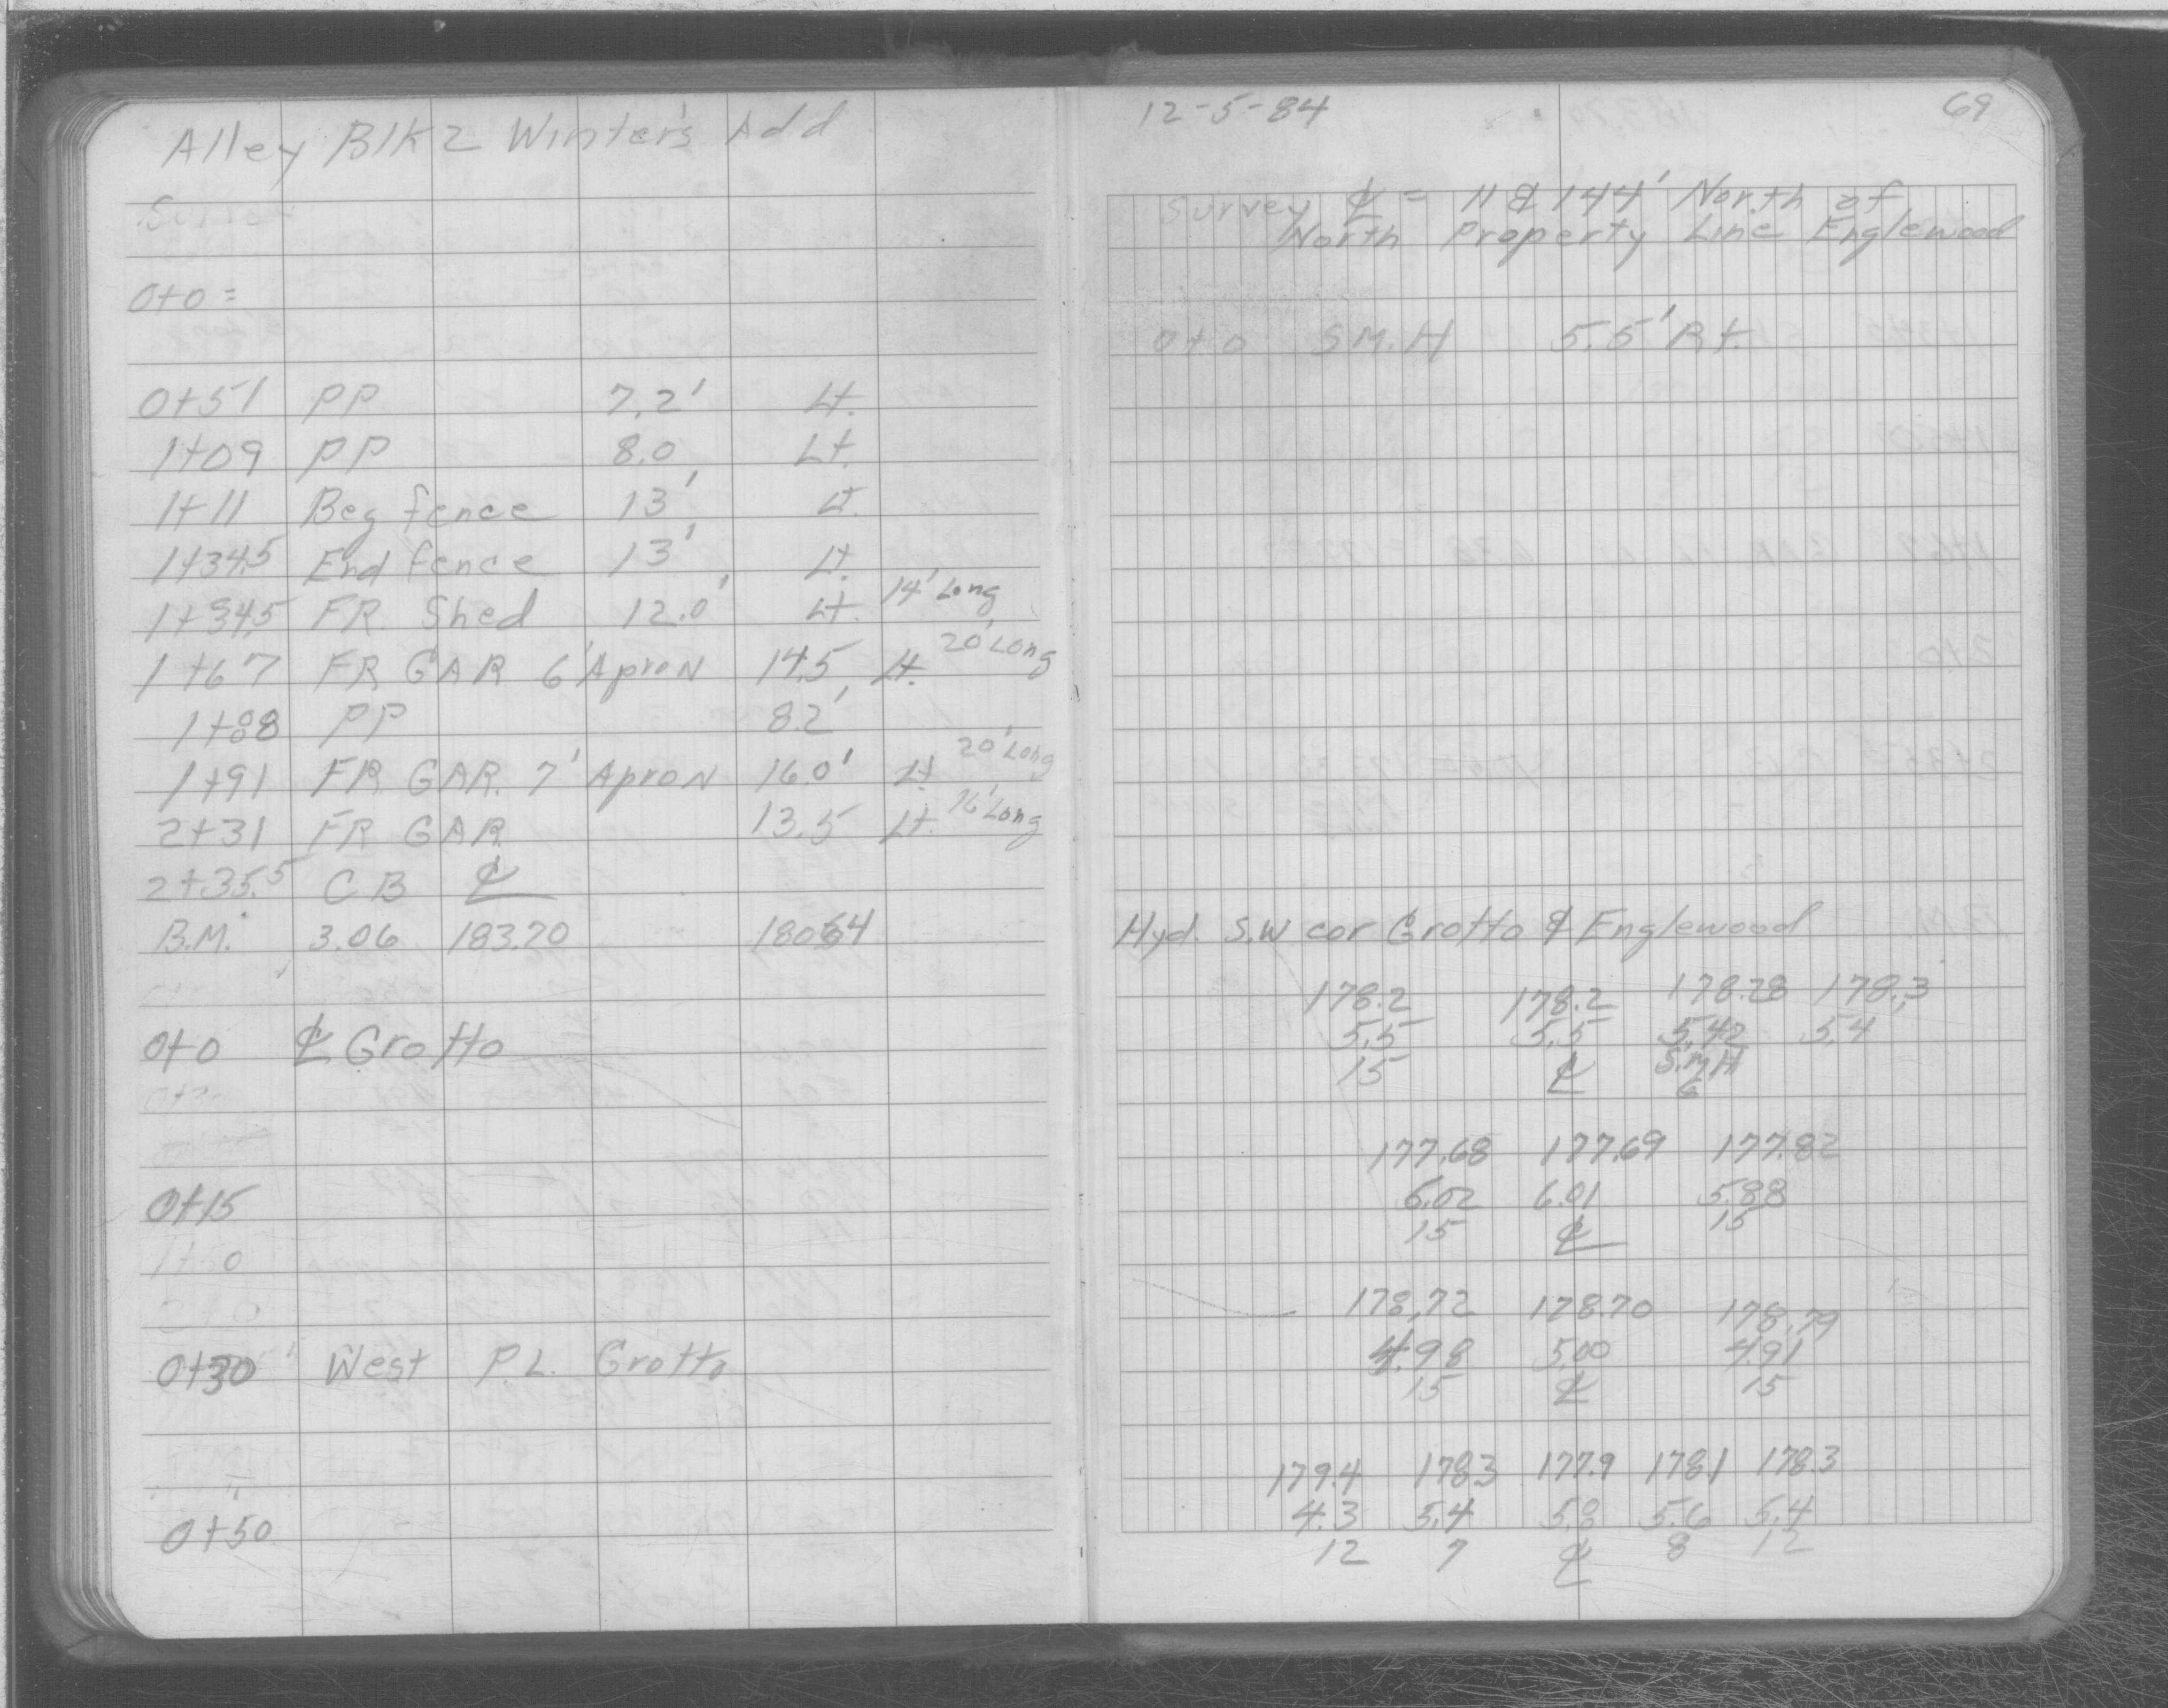 Alley Blk 2 Winter's Add
0+0 =
0+51 PP 7.2' Lt.
1+09 PP 8.0' Lt.
1+11 Beg fence 13' Lt.
1+34.5 End fence 13' Lt.
1+34.5 FR. Shed 12.0' Lt. 14' Long
1+67 FR GAR 6' Apron 14.5' Lt. 20' Long
1+88 PP 8.2'
1+91 FR. GAR. 7' Apron 16.0' Lt. 20' Long
2+31 FR GAR 13.5 Lt. 16' Long
2+35.5 CB ℄
B.M. 3.06 183.70 180.64
0+0 ℄ Grotto
0+15
0+30 West P.L. Grotto
0+50
12-5-84 69
Survey ℄ = 11 & 144' North of
North Property Line Englewood
0+0 S.M.H 5.5' Rt.
Hyd. S.W cor Grotto & Englewood
178.2 178.2 178.28 178.3
5.5 5.5 5.42 5.4
15 ℄ S.MH
6
177.68 177.69 177.82
6.02 6.01 5.88
15 ℄ 15
178.72 178.70 178.79
4.98 5.00 4.91
15 ℄ 15
179.4 178.3 177.9 178.1 178.3
4.3 5.4 5.8 5.6 5.4
12 7 ℄ 8 12